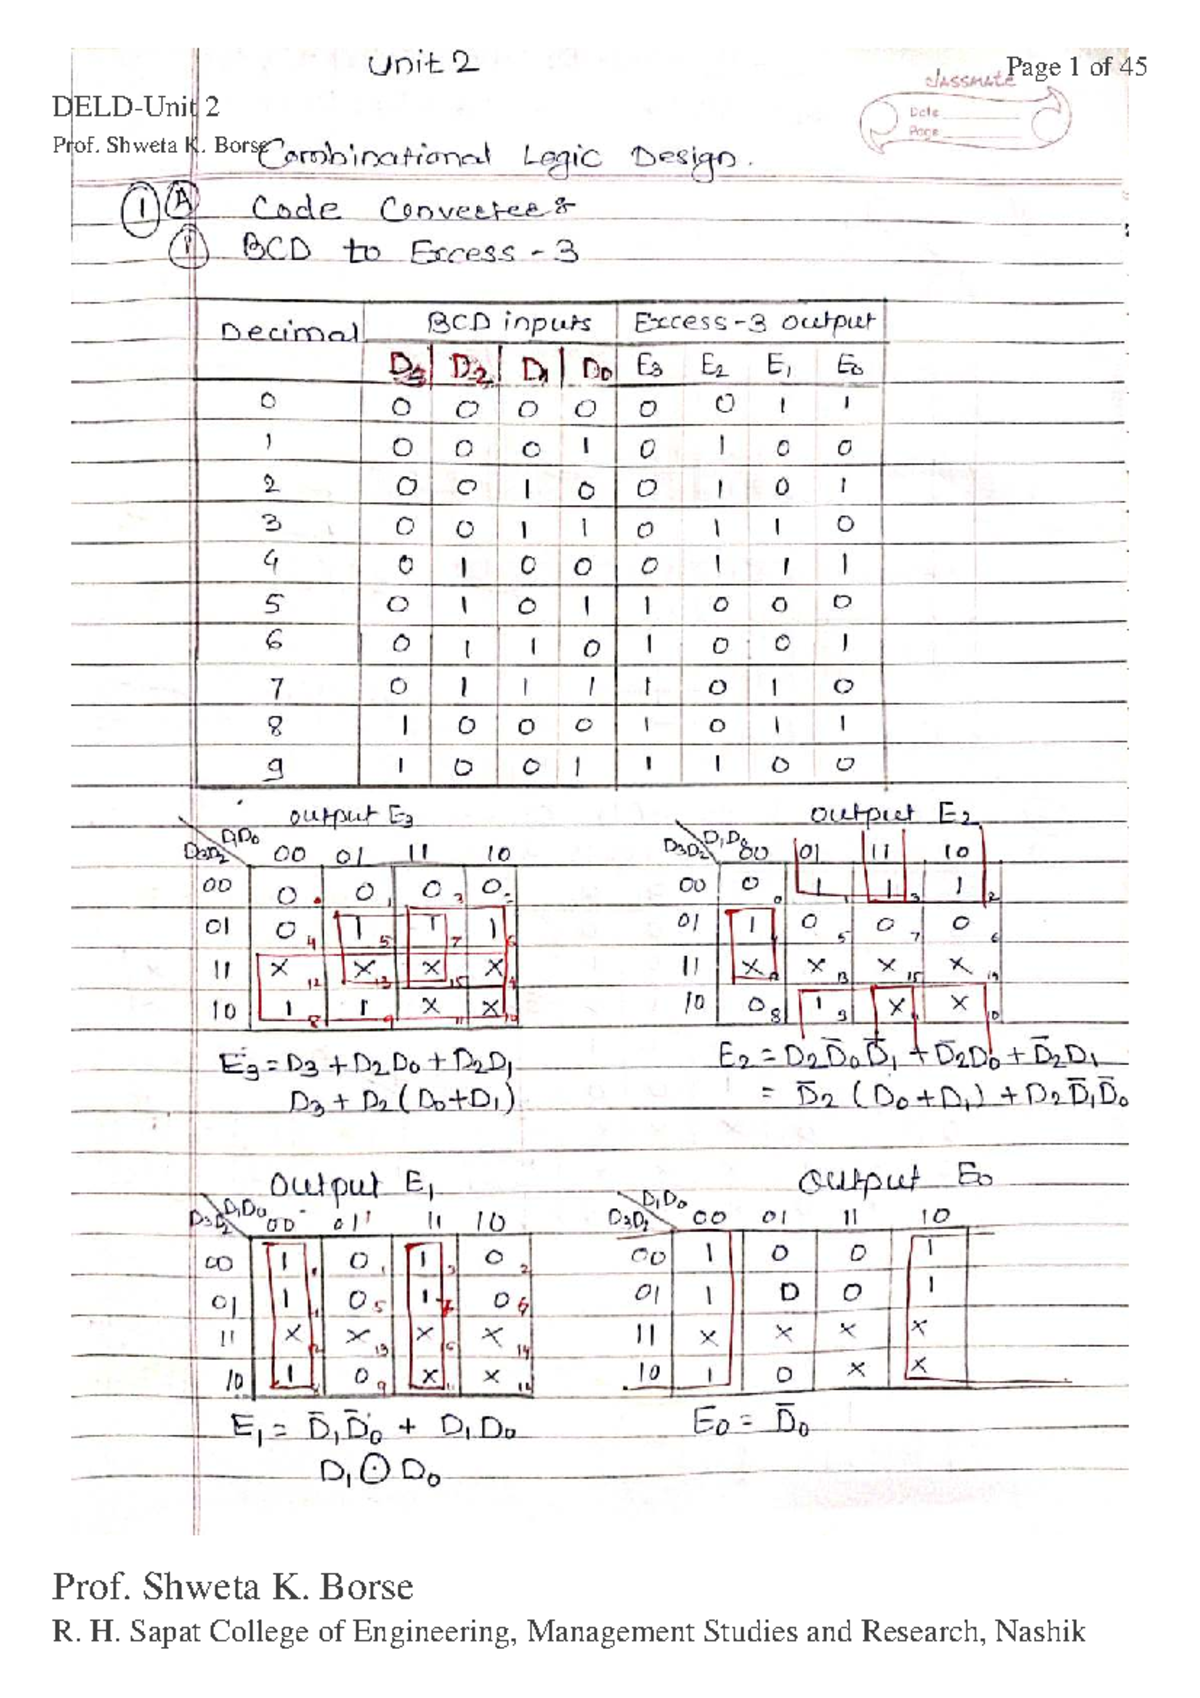 Unit 2
Page 1 of 45
classmate
DELD-Unit 2
Date
Page
Prof. Shweta K. Borse
Combinational Logic Design.
1 A Code Converters
i BCD to Excess-3
Decimal BCD inputs Excess-3 output
D3 D2 D1 D0 E3 E2 E1 E0
0 0 0 0 0 0 0 1 1
1 0 0 0 1 0 1 0 0
2 0 0 1 0 0 1 0 1
3 0 0 1 1 0 1 1 0
4 0 1 0 0 0 1 1 1
5 0 1 0 1 1 0 0 0
6 0 1 1 0 1 0 0 1
7 0 1 1 1 1 0 1 0
8 1 0 0 0 1 0 1 1
9 1 0 0 1 1 1 0 0
output E3
D1D0
D3D2 00 01 11 10
00 0 0 1 0 3 0 2
01 0 4 1 5 1 7 1 6
11 x 12 x 13 x 15 x
10 1 8 1 9 x 11 x 10
E3 = D3 + D2D0 + D2D1
D3 + D2 (D0+D1)
output E2
D1D0
D3D2 00 01 11 10
00 0 0 1 1 1 3 1 2
01 1 0 5 0 7 0 6
11 x 12 x 13 x 15 x
10 0 8 1 9 x x 10
E2 = D2D̄0D̄1 + D̄2D0 + D̄2D1
= D̄2 (D0+D1) + D2D̄1D̄0
Output E1
D1D0
D3D2 00 01 11 10
00 1 0 1 1 3 0 2
01 1 0 5 1 7 0 6
11 x x 13 x 15 x 14
10 1 0 9 x 11 x
E1 = D̄1D̄0 + D1D0
D1 ⊙ D0
Output E0
D1D0
D3D2 00 01 11 10
00 1 0 0 1
01 1 0 0 1
11 x x x x
10 1 0 x x
E0 = D̄0
Prof. Shweta K. Borse
R. H. Sapat College of Engineering, Management Studies and Research, Nashik